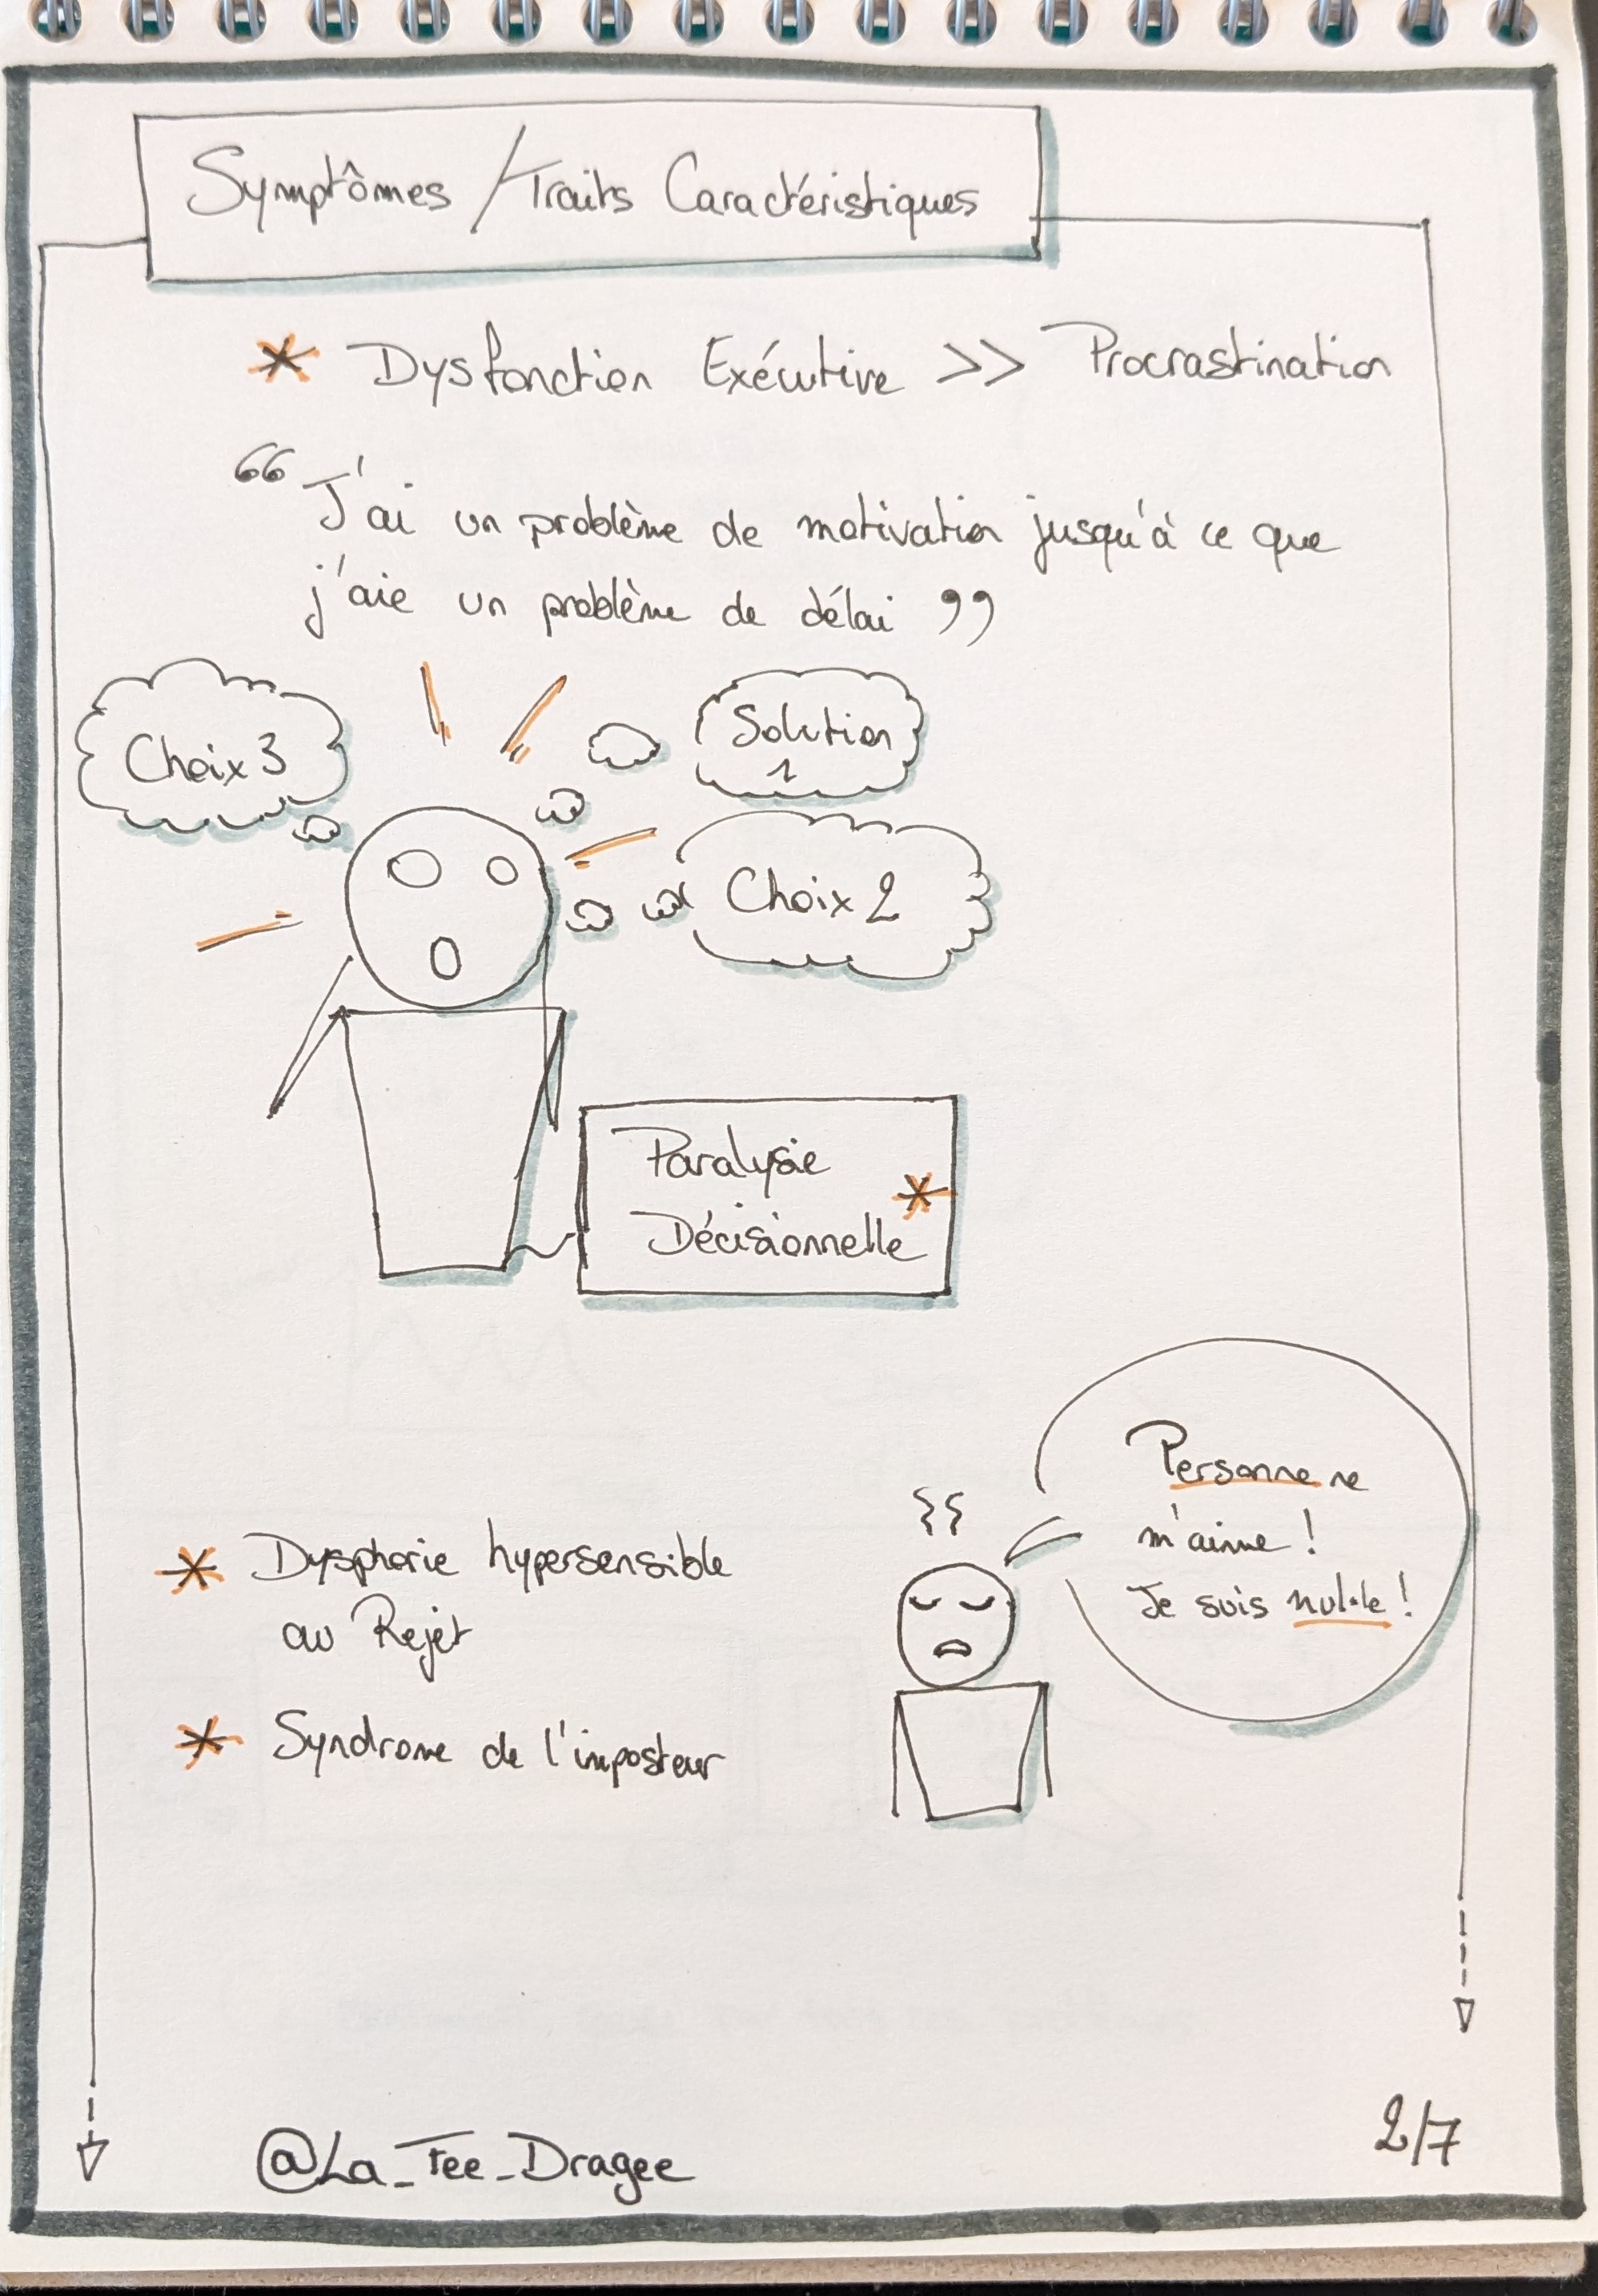 Symptômes / Traits Caractéristiques
* Dysfonction Exécutive >> Procrastination
“ J'ai un problème de motivation jusqu'à ce que
j'aie un problème de délai ”
Choix 3
Solution
1
Choix 2
Paralysie
Décisionnelle *
Personne ne
m'aime !
Je suis nul•le !
* Dysphorie hypersensible
au Rejet
* Syndrome de l'imposteur
@La_Fee_Dragee
2/7